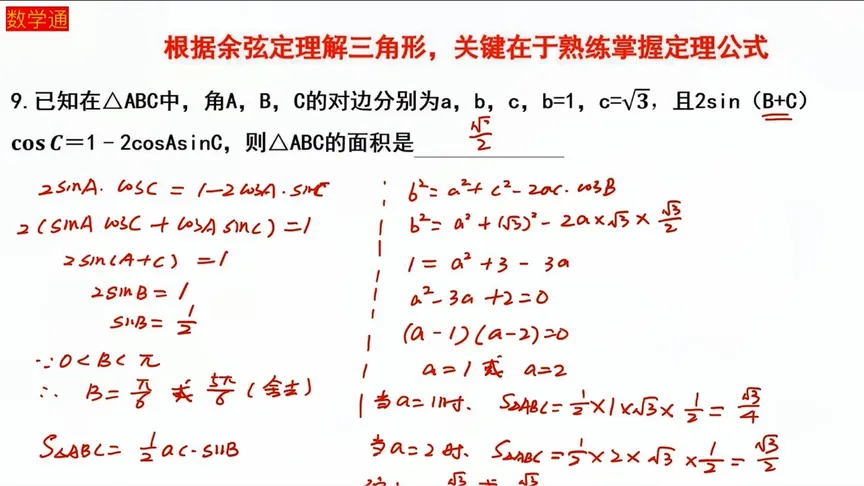 数学通
根据余弦定理解三角形，关键在于熟练掌握定理公式
9.已知在△ABC中，角A，B，C的对边分别为a，b，c，b=1，c=√3，且2sin（B+C）
cosC＝1－2cosAsinC，则△ABC的面积是 √3/2
2sinA·cosC = 1-2cosA·sinC
2(sinA cosC + cosA sinC) = 1
2sin(A+C) = 1
2sinB = 1
sinB = 1/2
∵0<B<π
∴ B= π/6 或 5π/6 (舍去)
S△ABC = 1/2 ac·sinB
b²= a²+ c²- 2ac·cosB
b²= a²+(√3)²- 2a×√3×√3/2
1= a²+3- 3a
a²-3a+2=0
(a-1)(a-2)=0
a=1 或 a=2
当a=1时. S△ABC= 1/2×1×√3×1/2= √3/4
当a=2时. S△ABC= 1/2×2×√3×1/2= √3/2